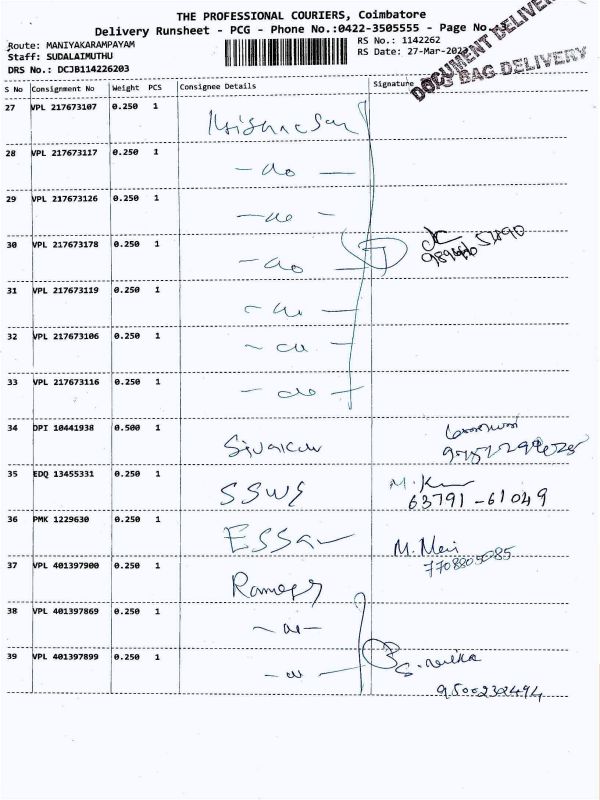 THE PROFESSIONAL COURIERS, Coimbatore
Delivery Runsheet - PCG - Phone No.:0422-3505555 - Page No.
DOCUMENT DELIVERY
DOCS BAG DELIVERY
Route: MANIYAKARAMPAYAM
RS No.: 1142262
Staff: SUDALAIMUTHU
RS Date: 27-Mar-2023
DRS No.: DCJB114226203
S No Consignment No Weight PCS Consignee Details Signature
27 VPL 217673107 0.250 1
28 VPL 217673117 0.250 1 - do -
29 VPL 217673126 0.250 1 - do -
30 VPL 217673178 0.250 1 - do -
31 VPL 217673119 0.250 1 - do -
32 VPL 217673106 0.250 1 - do -
33 VPL 217673116 0.250 1 - do -
34 DPI 10441938 0.500 1 Sivakumar
35 EDQ 13455331 0.250 1 SSWS M. K
63791-61049
36 PMK 1229630 0.250 1 ESSar M. Mani
7708805085
37 VPL 401397900 0.250 1 Ramesh
38 VPL 401397869 0.250 1 - do -
39 VPL 401397899 0.250 1 - do -
9500232494